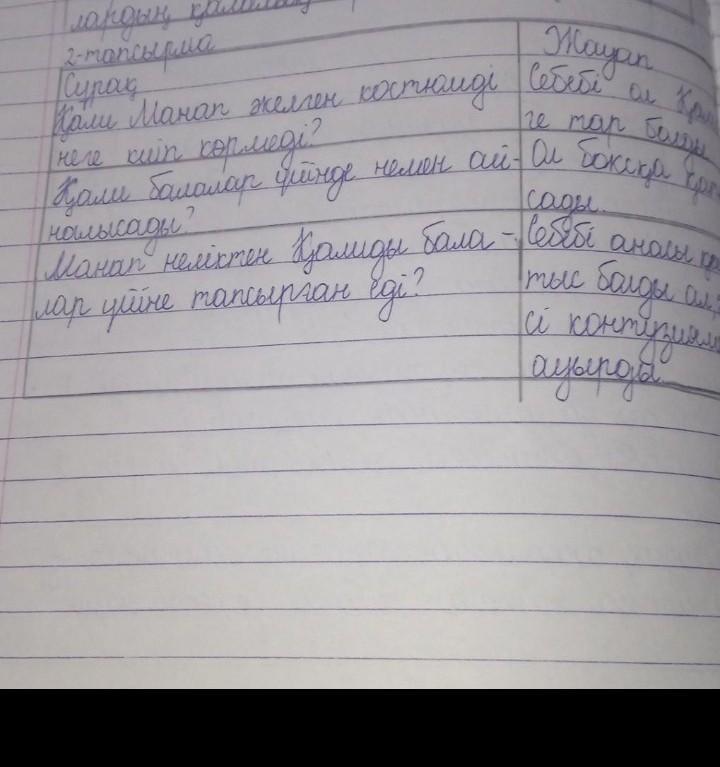 лардың
2-тапсырма
Сұрақ
Жауап
Қали Манап әкелген костюмді
неге киіп көрмеді?
Себебі ол Қали
ге тар болды
Қали балалар үйінде немен ай-
налысады?
Ол боксқа қат
сады.
Манап неліктен Қалиды бала-
лар үйіне тапсырған еді?
Себебі анасы қай
тыс болды ал,
сі контузиям
ауырды.